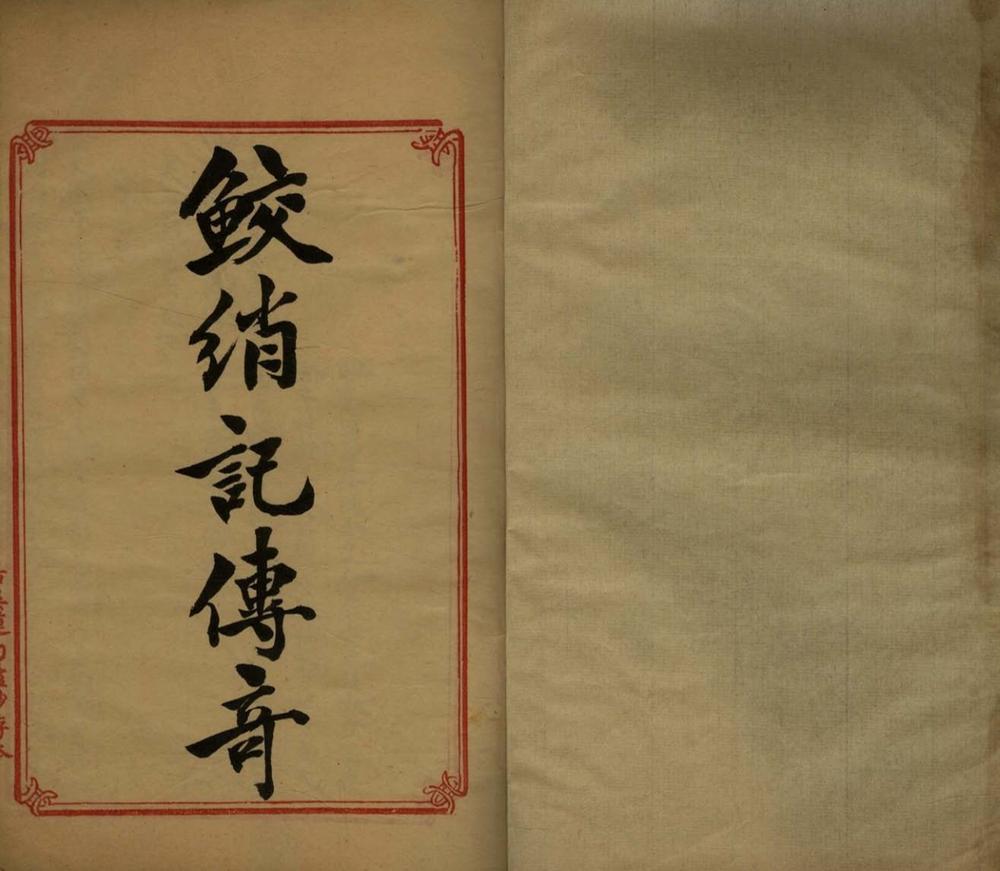 鮫綃記傳竒